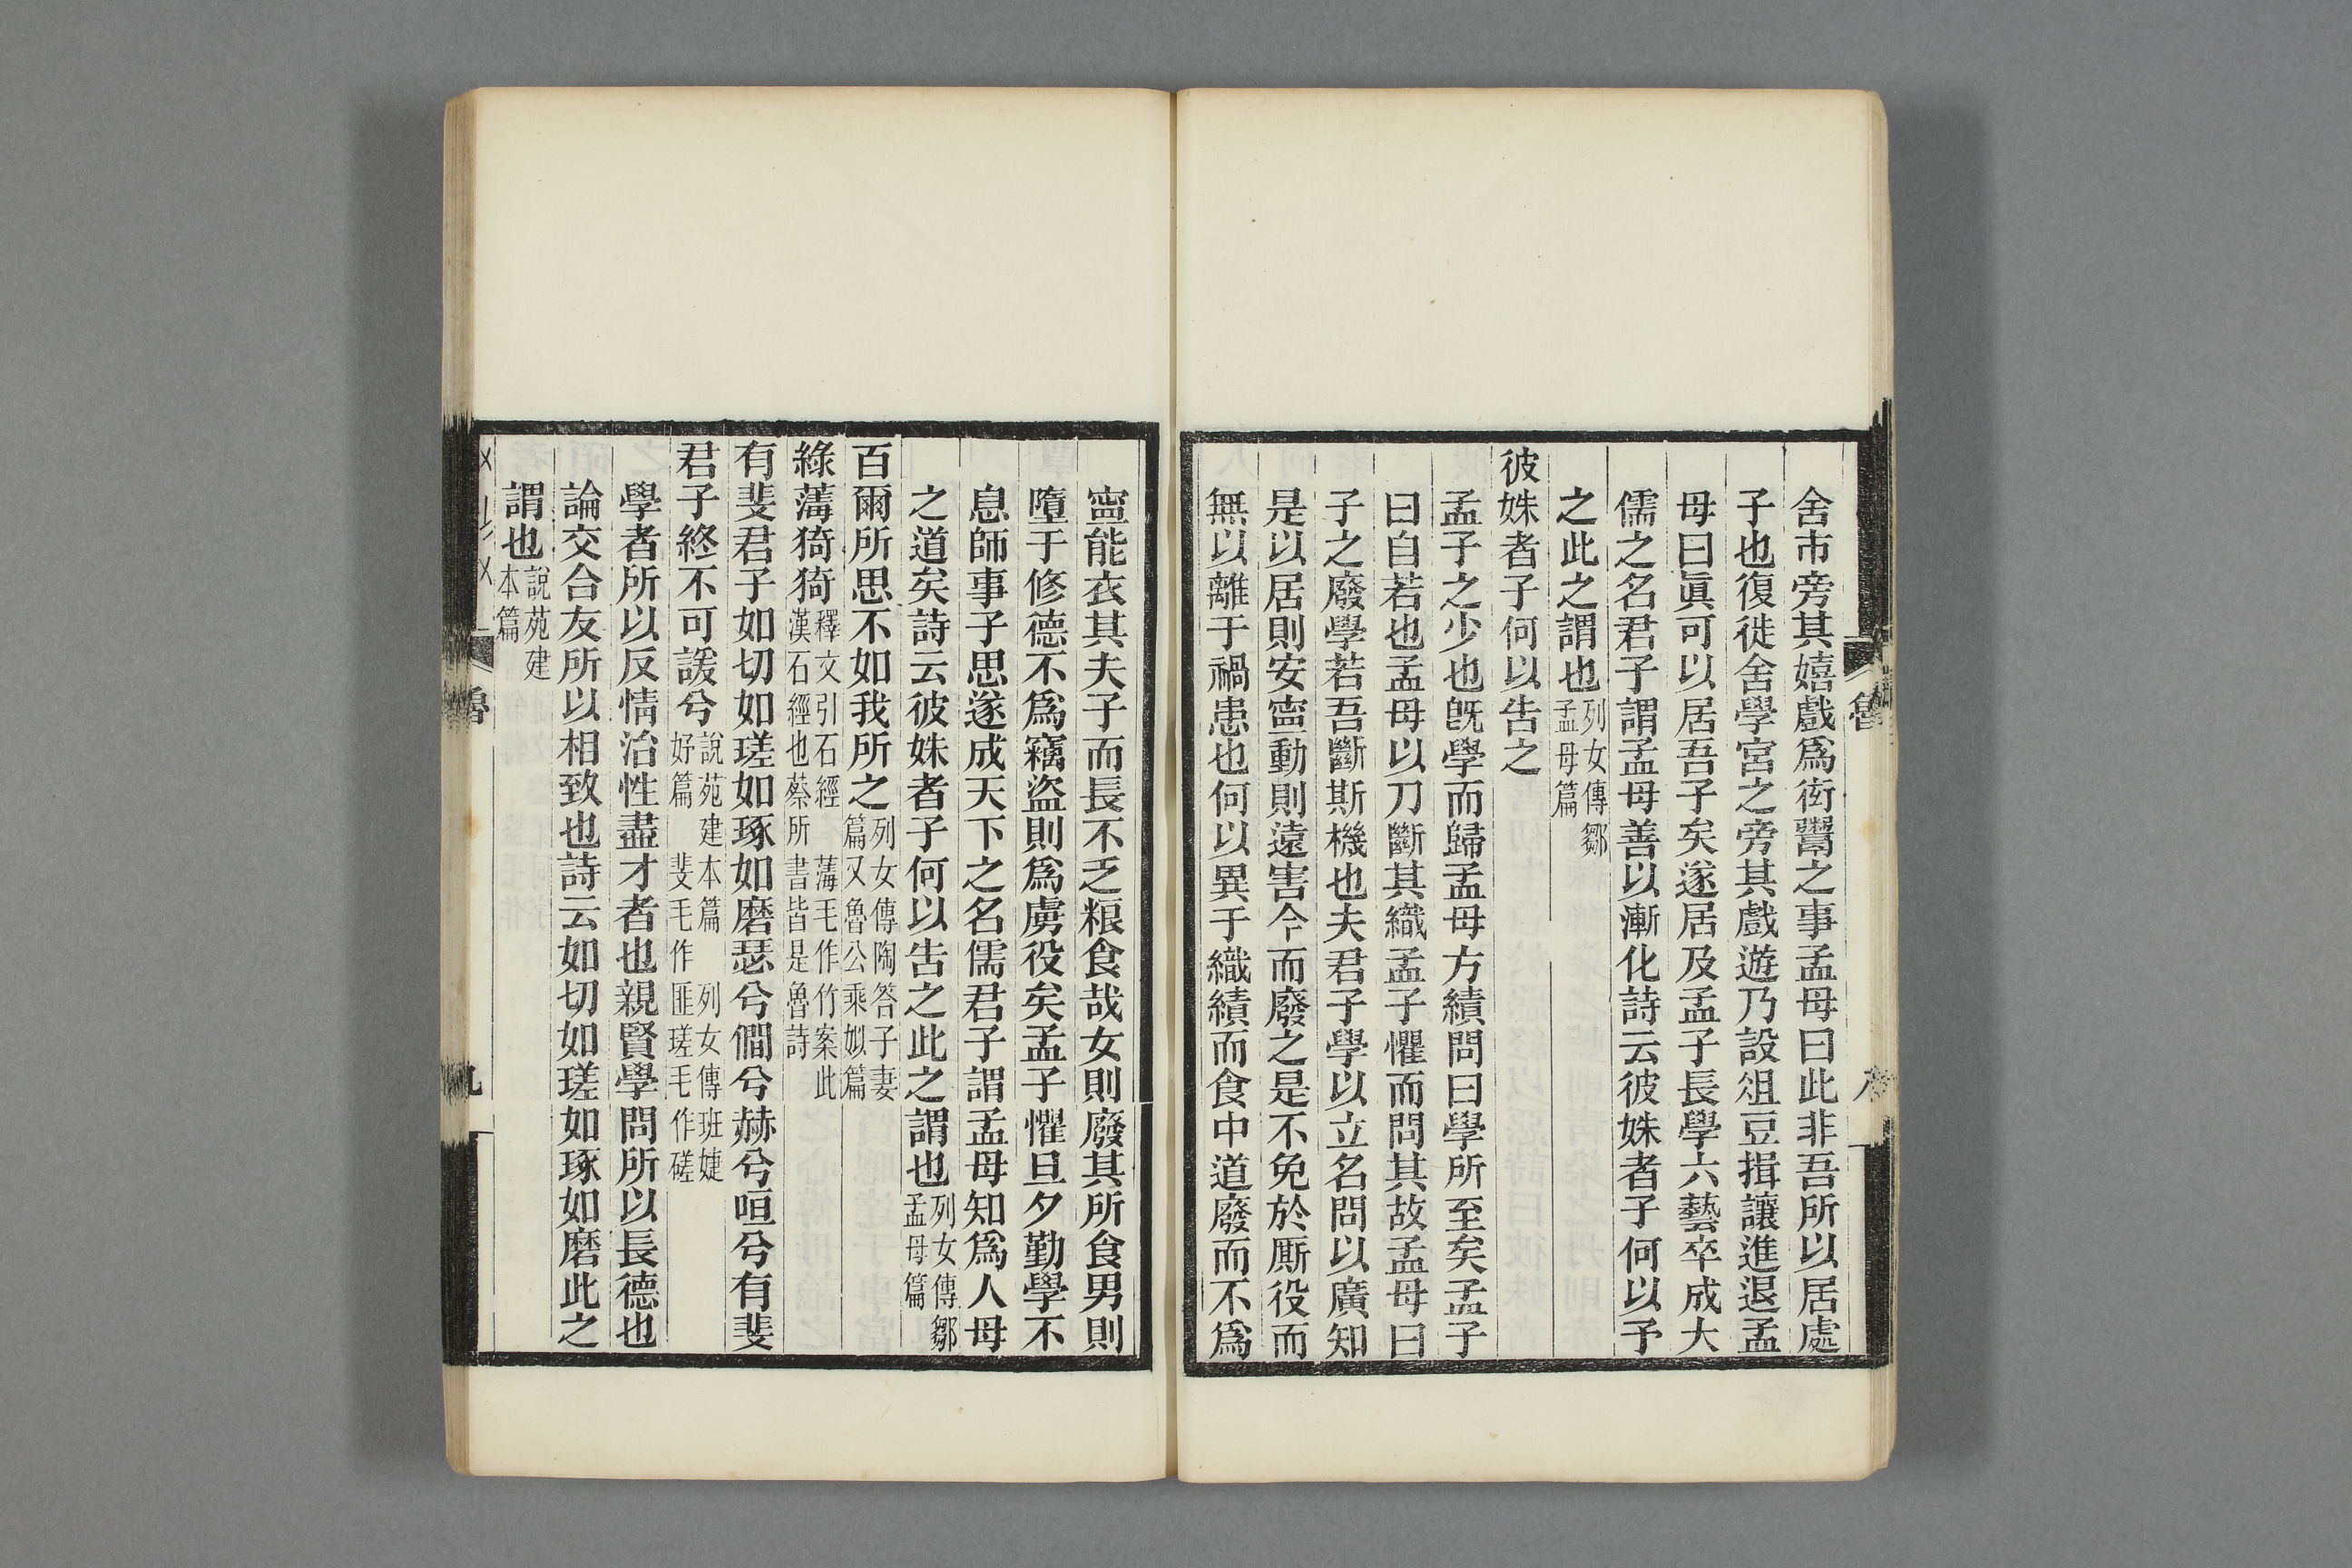 舍市旁其嬉戲爲衒鬻之事孟母曰此非吾所以居處
子也復徙舍學宮之旁其戲遊乃設俎豆揖讓進退孟
母曰眞可以居吾子矣遂居及孟子長學六藝卒成大
儒之名君子謂孟母善以漸化詩云彼姝者子何以予
之此之謂也列女傳鄒孟母篇
彼姝者子何以告之
孟子之少也旣學而歸孟母方績問曰學所至矣孟子
曰自若也孟母以刀斷其織孟子懼而問其故孟母曰
子之廢學若吾斷斯機也夫君子學以立名問以廣知
是以居則安寍動則遠害今而廢之是不免於厮役而
無以離于禍患也何以異于織績而食中道廢而不爲
寍能衣其夫子而長不乏粮食哉女則廢其所食男則
墮于修德不爲竊盜則爲虜役矣孟子懼旦夕勤學不
息師事子思遂成天下之名儒君子謂孟母知爲人母
之道矣詩云彼姝者子何以告之此之謂也列女傳鄒孟母篇
百爾所思不如我所之列女傳陶答子妻篇又魯公乘姒篇
綠薄猗猗釋文引石經薄毛作竹案此漢石經也蔡所書皆是魯詩
有斐君子如切如瑳如琢如磨瑟兮僩兮赫兮咺兮有斐
君子終不可諼兮說苑建本篇 列女傳班婕好篇 斐毛作匪瑳毛作磋
學者所以反情治性盡才者也親賢學問所以長德也
論交合友所以相致也詩云如切如瑳如琢如磨此之
謂也說苑建本篇
魯
九